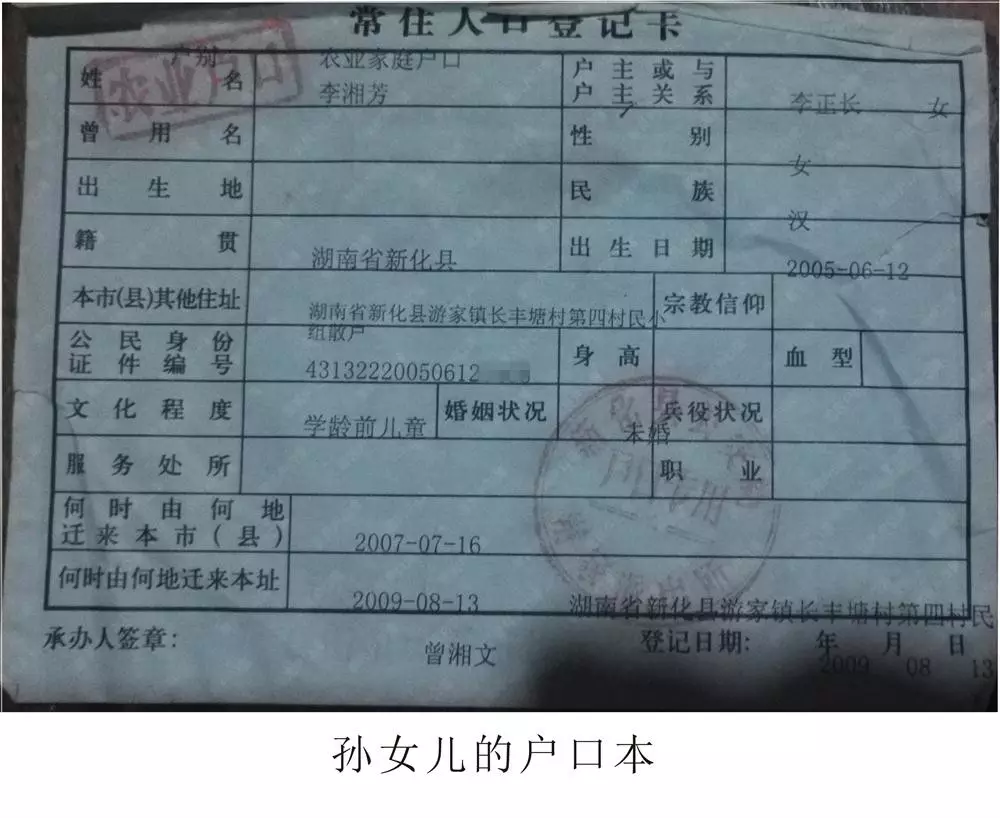 常住人口登记卡
农业户口
户别 农业家庭户口
姓名 李湘芳 户主或与户主关系 李正长 女
曾用名 性别 女
出生地 民族 汉
籍贯 湖南省新化县 出生日期 2005-06-12
本市(县)其他住址 湖南省新化县游家镇长丰塘村第四村民小组散户 宗教信仰
公民身份证件编号 43132220050612 身高 血型
文化程度 学龄前儿童 婚姻状况 未婚 兵役状况
服务处所 职业
何时由何地迁来本市(县) 2007-07-16
何时由何地迁来本址 2009-08-13 湖南省新化县游家镇长丰塘村第四村民
承办人签章: 曾湘文 登记日期: 2009年08月13日
孙女儿的户口本